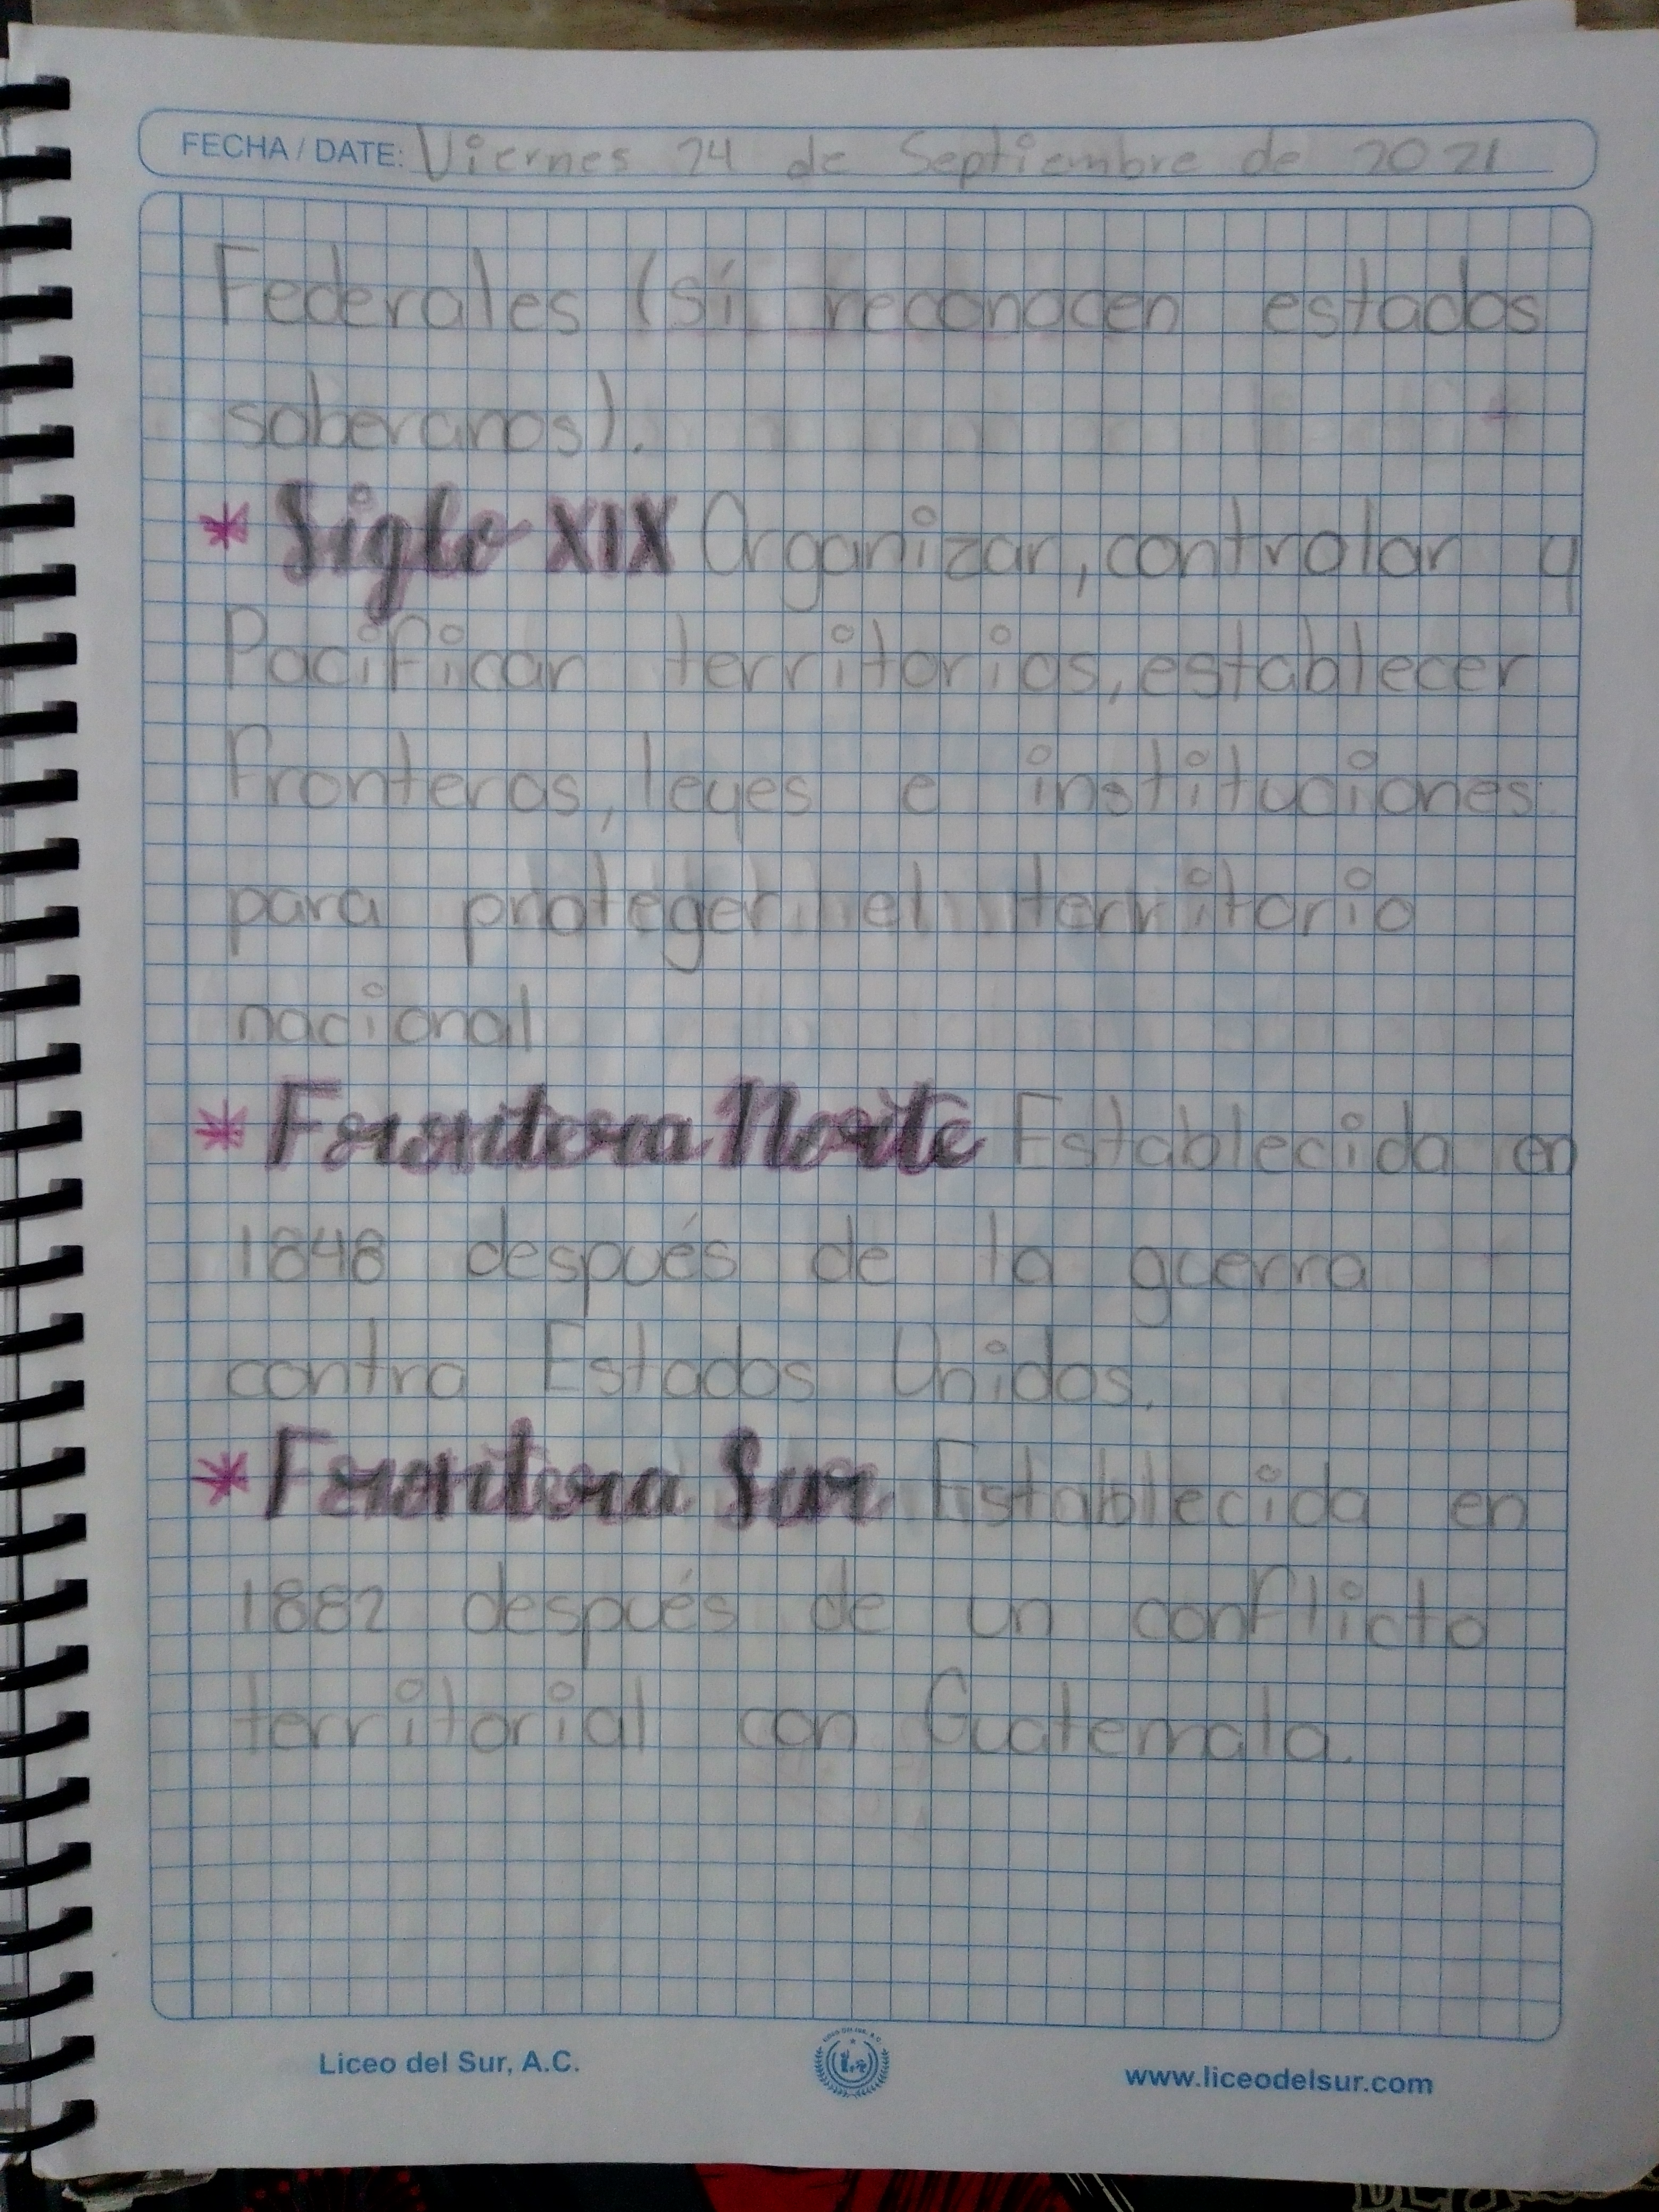 FECHA / DATE: Viernes 24 de Septiembre de 2021
Federales (sí reconocen estados
soberanos).
* Siglo XIX Organizar, controlar y
Pacificar territorios, establecer
fronteras, leyes e instituciones
para proteger el territorio
nacional
* Frontera Norte Establecida en
1848 después de la guerra
contra Estados Unidos.
* Frontera Sur Establecida en
1882 después de un conflicto
territorial con Guatemala.
Liceo del Sur, A.C.
www.liceodelsur.com